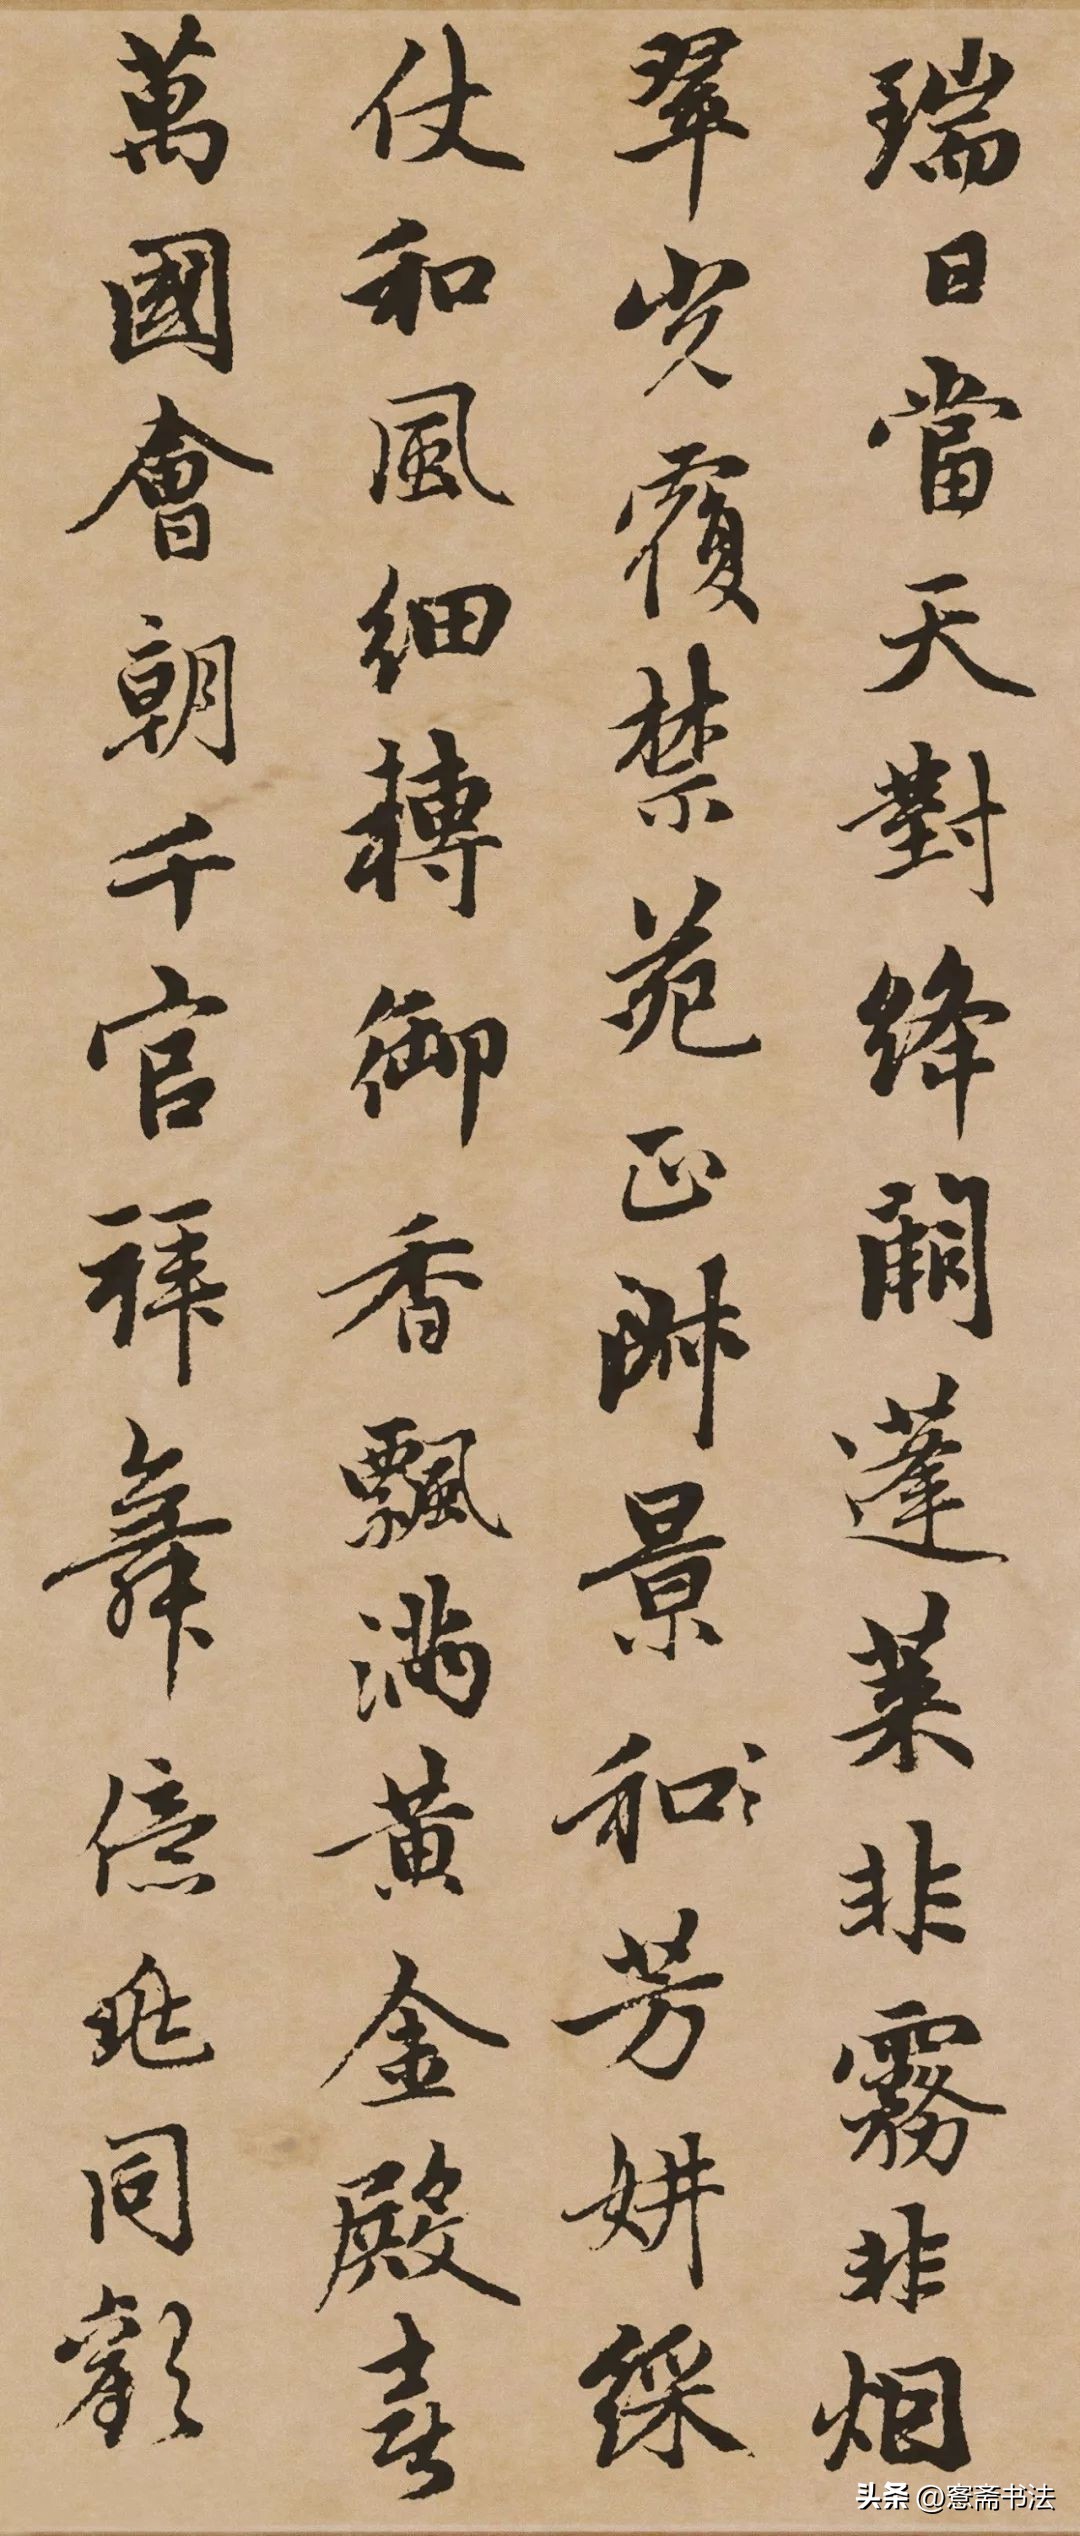 瑞日當天對絳闕蓬萊非霧非烟
翠光覆禁苑正淑景和芳妍綵
仗和風細轉御香飄滿黃金殿喜
萬國會朝千官拜舞億兆同歡
头条 @愙斋书法